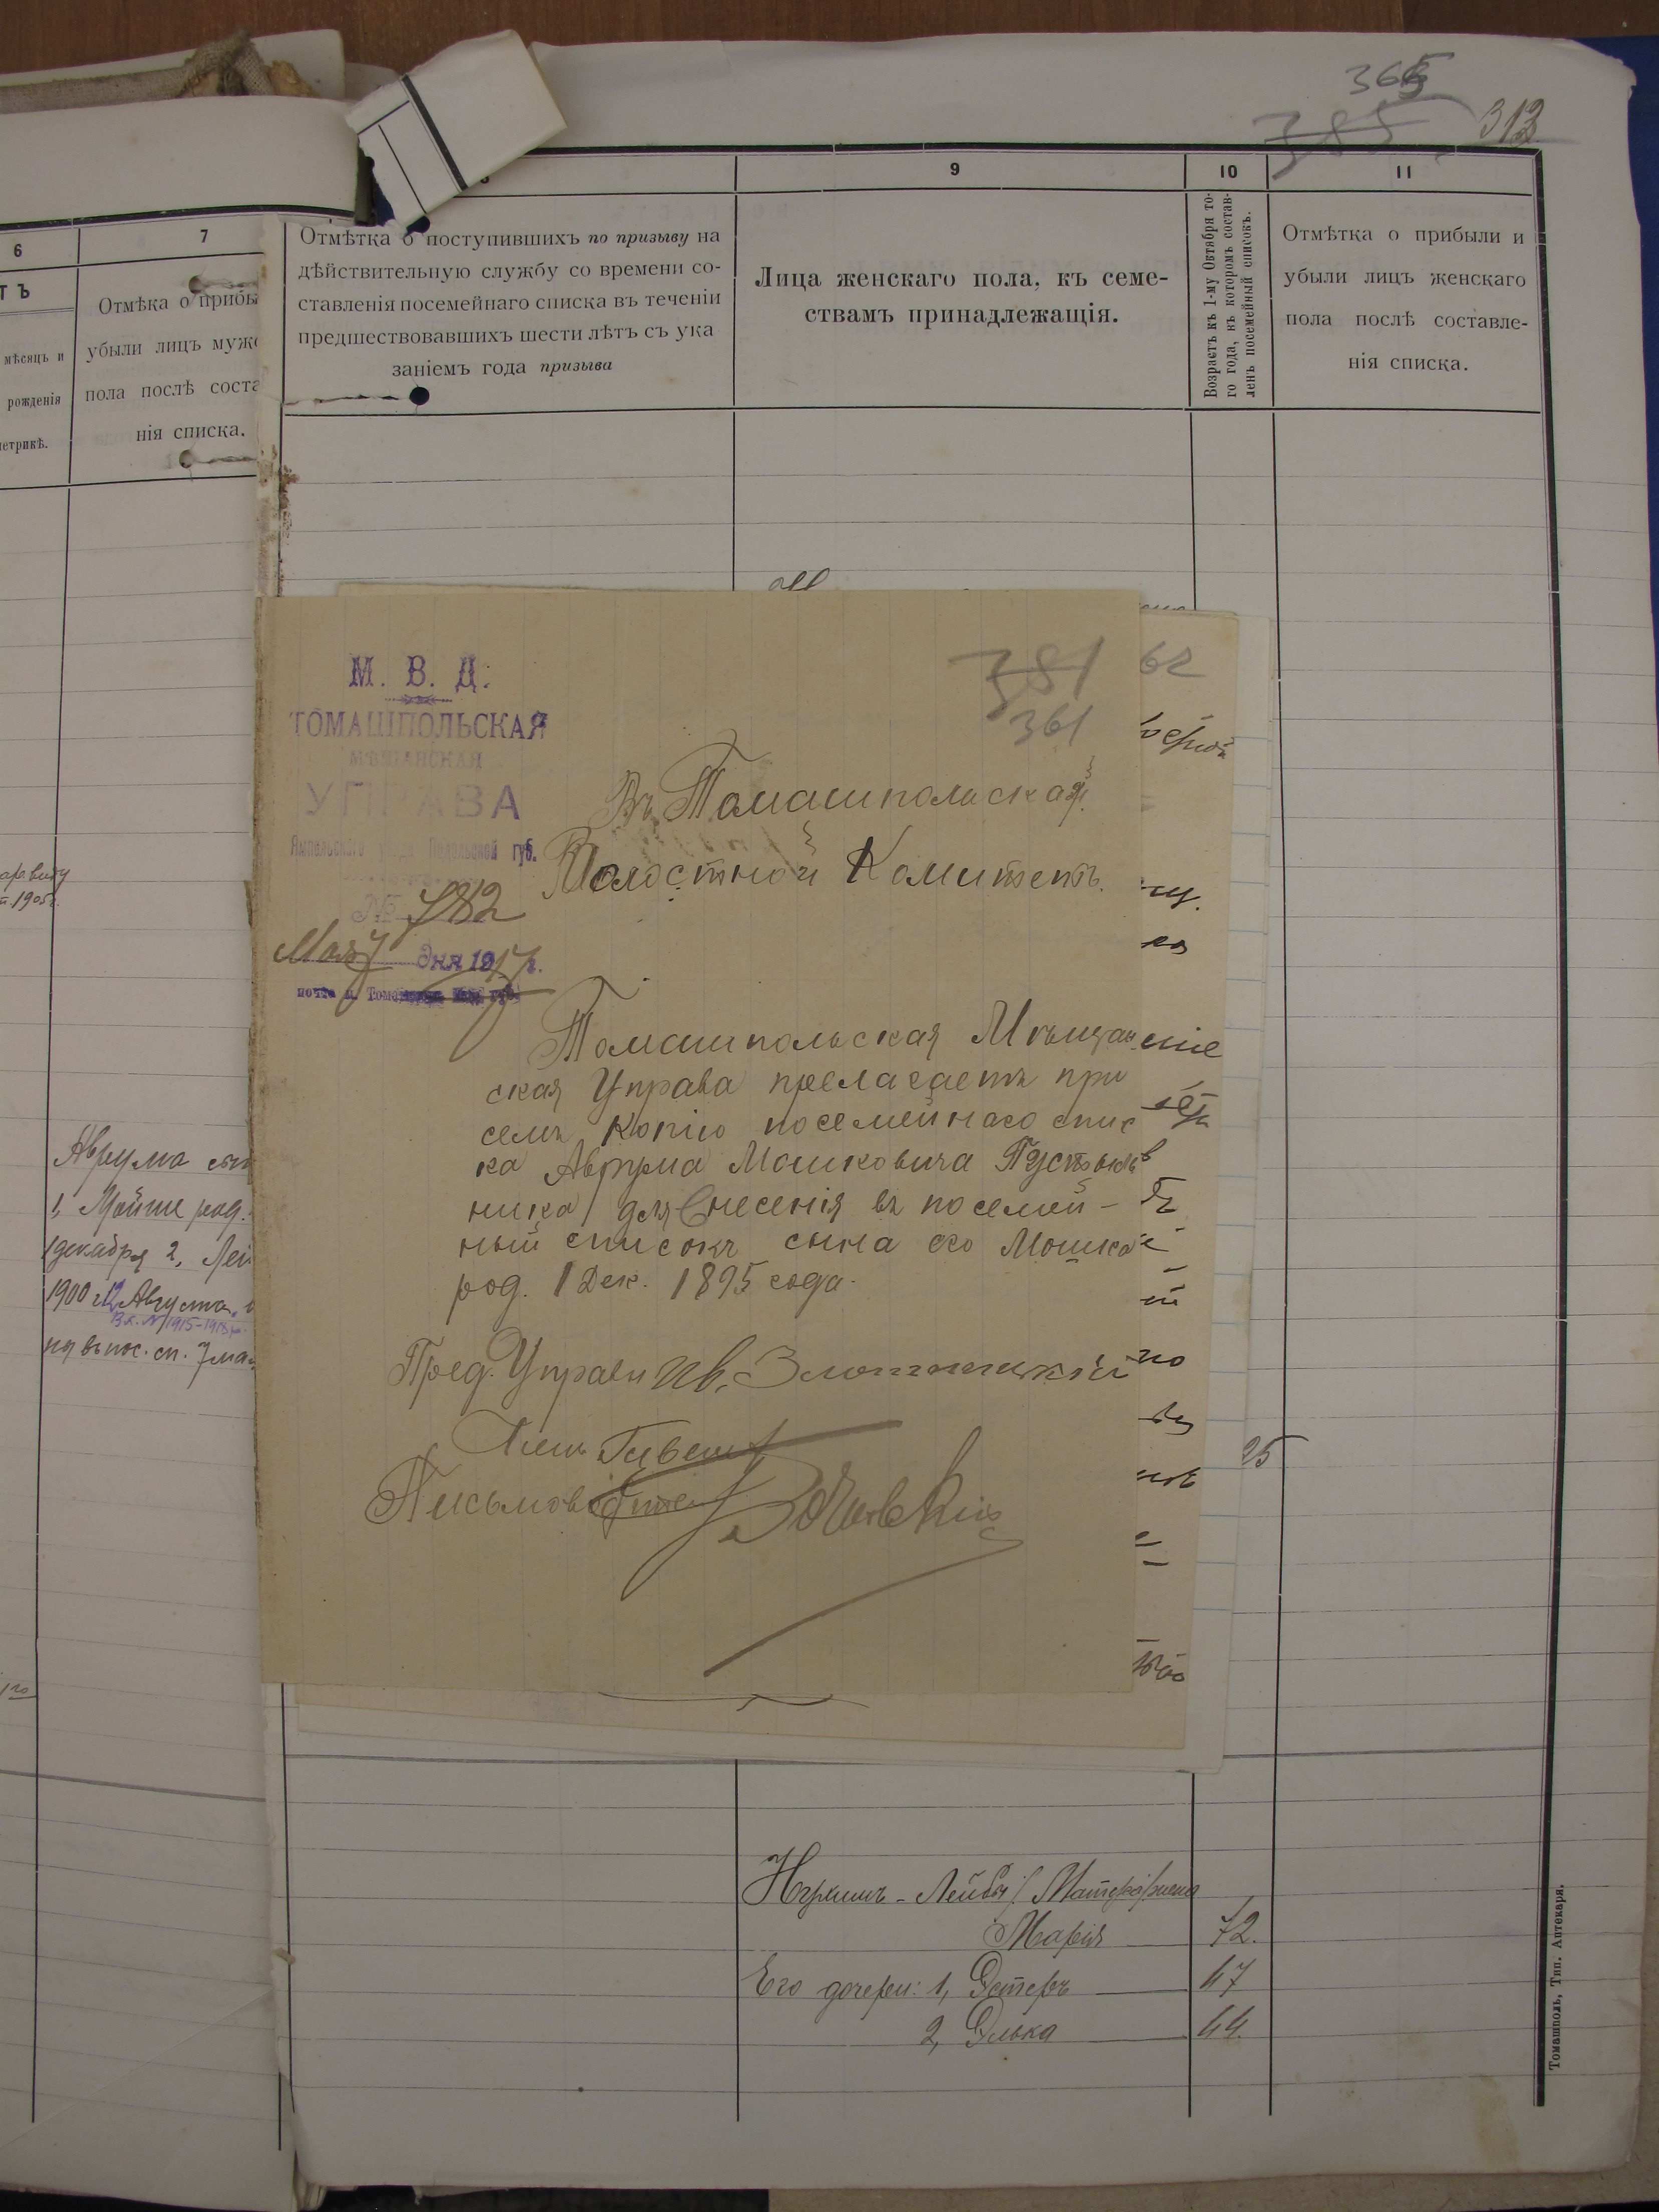 365
385
313
6
7
9
10
11
ТЪ
мѣсяцъ и
рожденія
метрикѣ.
Отмѣка о прибы
убыли лицъ муж
пола послѣ соста
нія списка.
Отмѣтка о поступившихъ по призыву на
дѣйствительную службу со времени со-
ставленія посемейнаго списка въ теченіи
предшествовавшихъ шести лѣтъ съ ука
заніемъ года призыва
Лица женскаго пола, къ семе-
ствамъ принадлежащія.
Возрастъ къ 1-му Октября то-
го года, въ которомъ состав-
ленъ посемейный списокъ.
Отмѣтка о прибыли и
убыли лицъ женскаго
пола послѣ составле-
нія списка.
1905г.
Аврума сын
1, Мойше род.
1 декабря 2, Лей
1900 г. 12 Августа
1915-1918
М. В. Д.
ТОМАШПОЛЬСКАЯ
МѢЩАНСКАЯ
УПРАВА
Ямпольскаго уѣзда Подольской губ.
№ 782
Мая 7 дня 1917 г.
почта м. Томашполь Под. губ.
381
361
62
Въ Томашпольскій
Волостной Комитетъ.
Томашпольская Мѣщан
ская Управа прелагаетъ при
семъ копію посемейнаго спис
ка Аврума Мошковича Пустыль
ника для внесенія въ посемей-
ный списокъ сына его Мошка
род. 1 Дек. 1895 года.
Пред. Управы Ив. Злотницкій
Член
Письмоводитель
25
Нухимъ-Лейбы
Марія 72.
Его дочери: 1, Эстеръ 47
2, Элька 44.
Томашполь, Тип. Аптекаря.